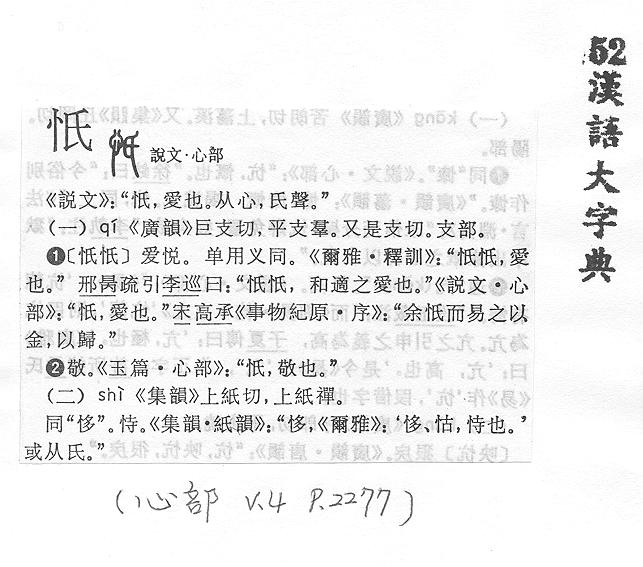 52
漢語大字典
忯 說文·心部
《説文》：“忯，愛也。从心，氏聲。”
(一) qí 《廣韻》巨支切，平支羣。又是支切。支部。
❶〔忯忯〕爱悦。单用义同。《爾雅·釋訓》：“忯忯，愛
也。”邢昺疏引李巡曰：“忯忯，和適之愛也。”《説文·心
部》：“忯，愛也。”宋高承《事物紀原·序》：“余忯而易之以
金，以歸。”
❷敬。《玉篇·心部》：“忯，敬也。”
(二) shì 《集韻》上紙切，上紙禪。
同“恀”。恃。《集韻·紙韻》：“恀，《爾雅》：‘恀、怙，恃也。’
或从氏。”
(心部 V.4 P.2277)